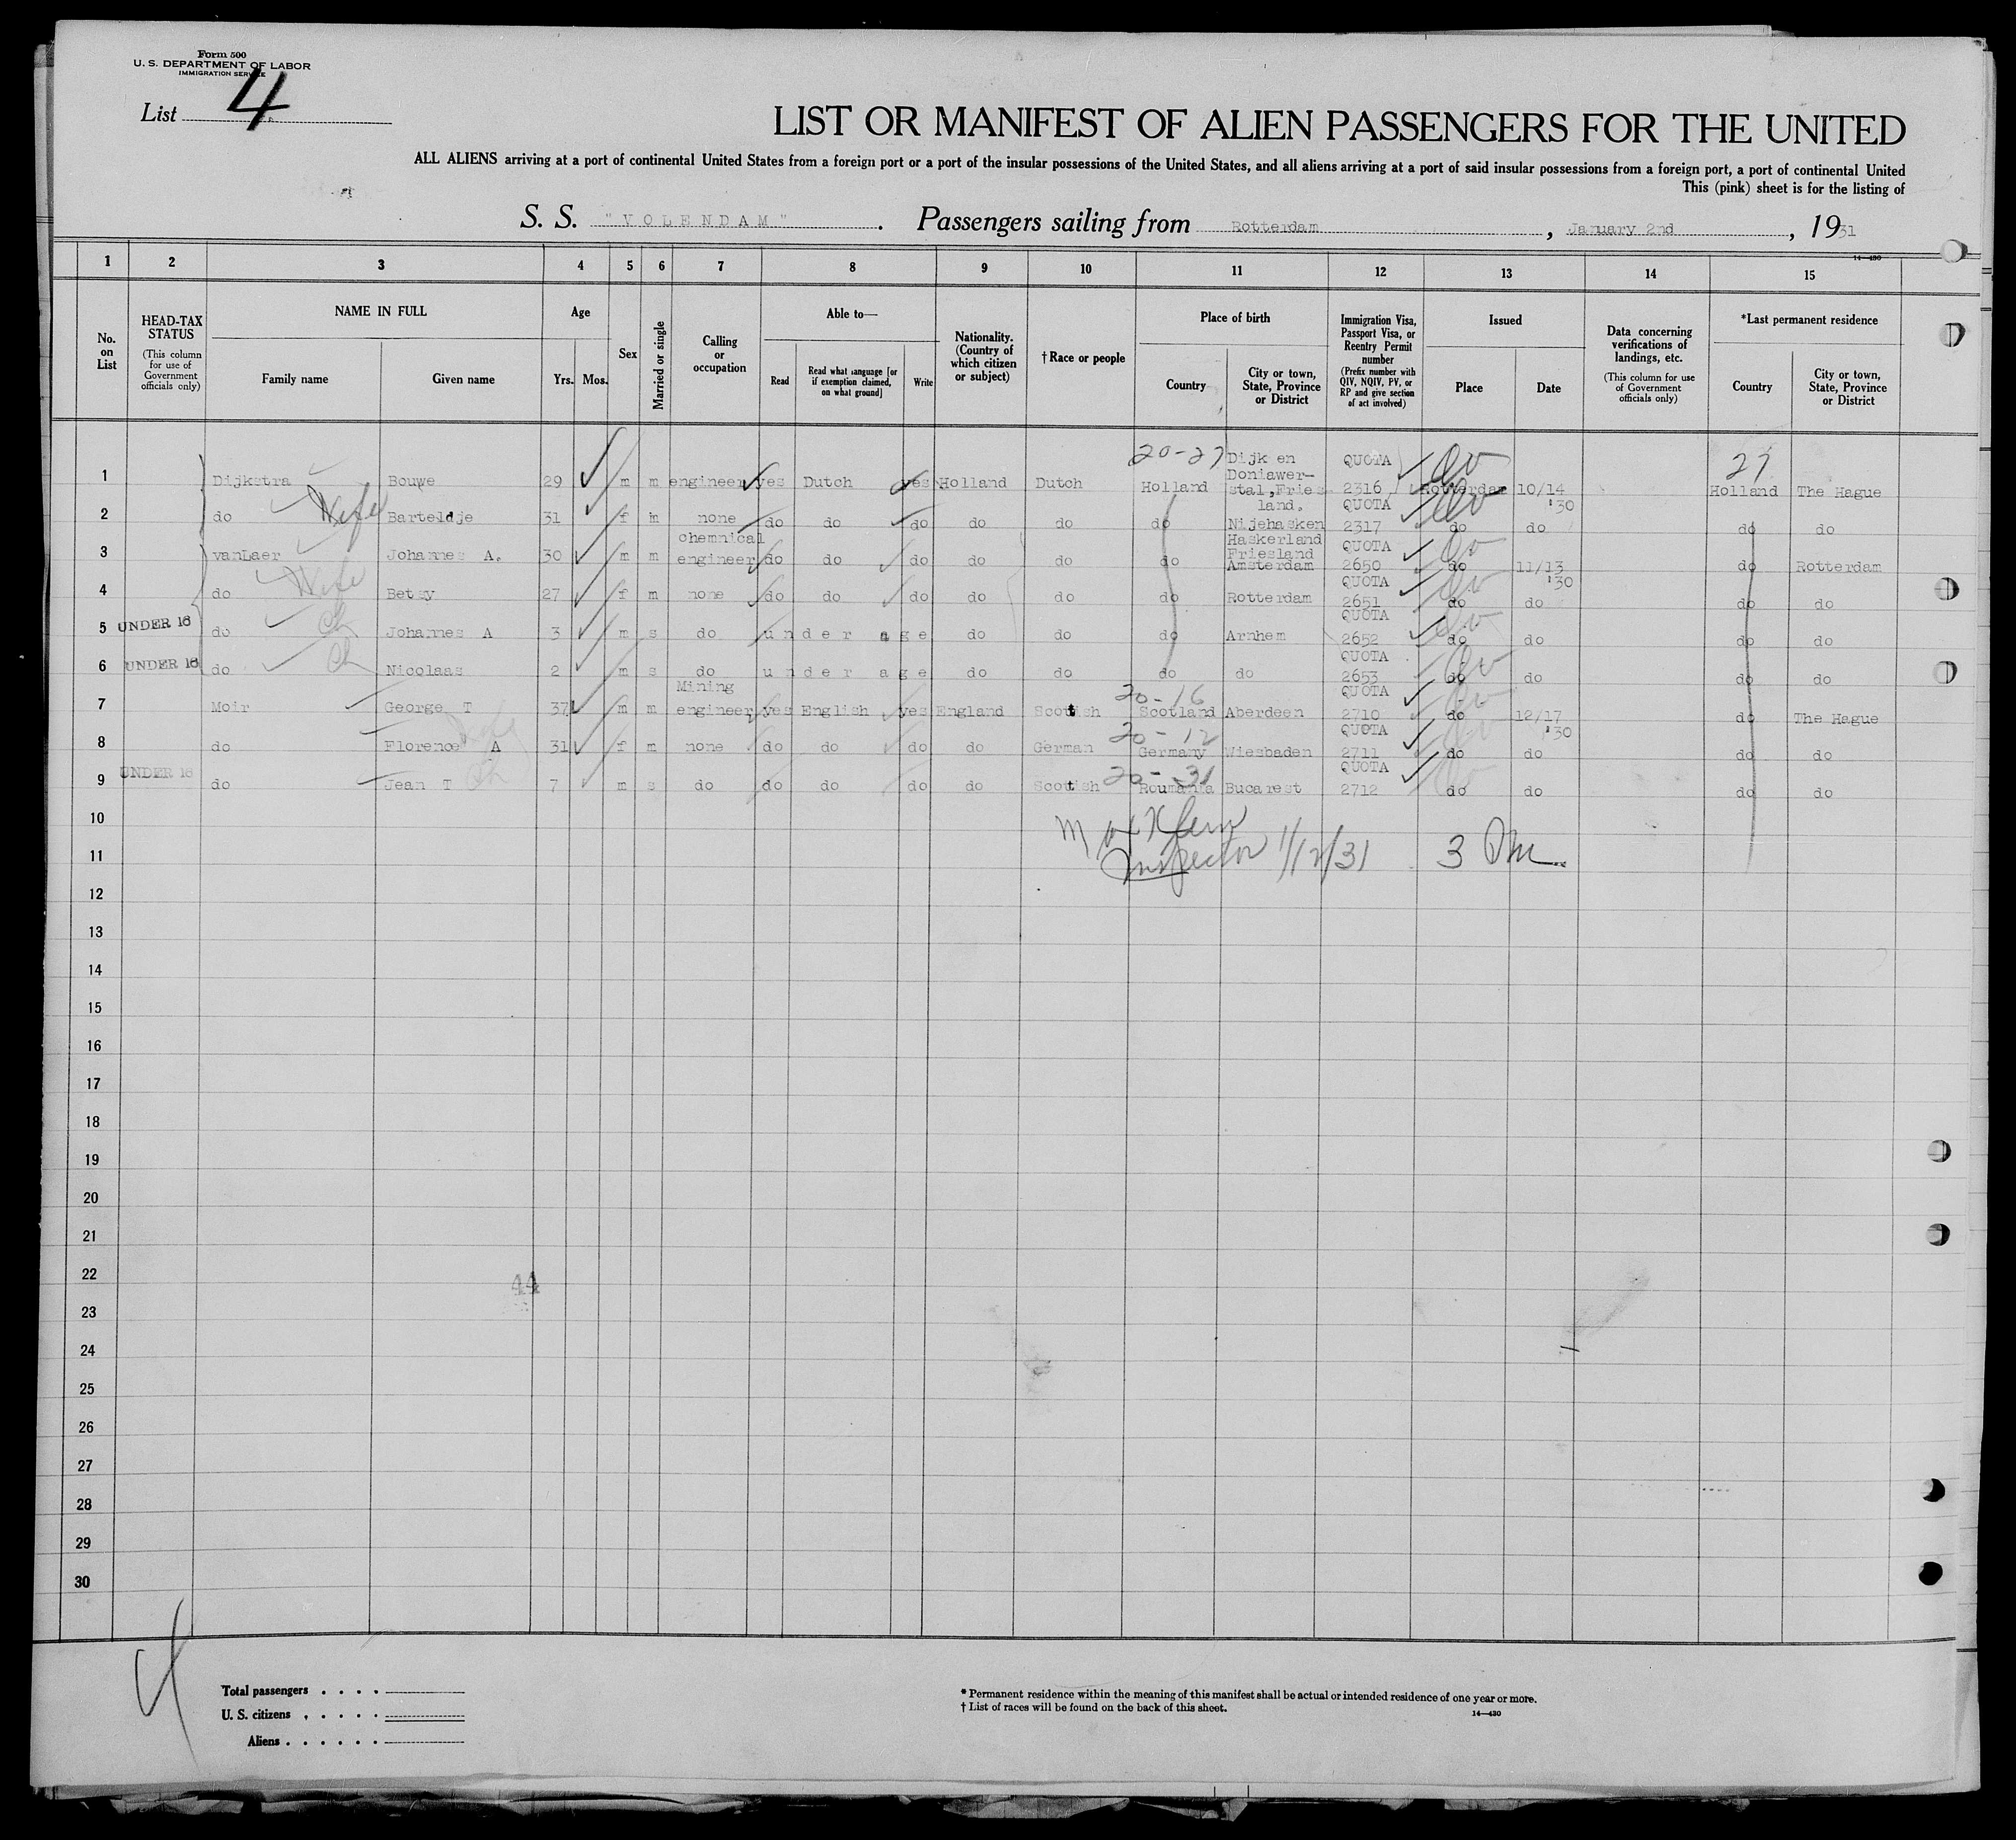 Form 500
U. S. DEPARTMENT OF LABOR
IMMIGRATION SERVICE
List 4
LIST OR MANIFEST OF ALIEN PASSENGERS FOR THE UNITED
ALL ALIENS arriving at a port of continental United States from a foreign port or a port of the insular possessions of the United States, and all aliens arriving at a port of said insular possessions from a foreign port, a port of continental United
This (pink) sheet is for the listing of
S. S. "VOLENDAM". Passengers sailing from Rotterdam, January 2nd, 1931
14—430
1 2 3 4 5 6 7 8 9 10 11 12 13 14 15
No. on List
HEAD-TAX STATUS (This column for use of Government officials only)
NAME IN FULL
Family name Given name
Age
Yrs. Mos.
Sex
Married or single
Calling or occupation
Able to—
Read
Read what language [or if exemption claimed, on what ground]
Write
Nationality. (Country of which citizen or subject)
† Race or people
Place of birth
Country
City or town, State, Province or District
Immigration Visa, Passport Visa, or Reentry Permit number (Prefix number with QIV, NQIV, PV, or RP and give section of act involved)
Issued
Place Date
Data concerning verifications of landings, etc. (This column for use of Government officials only)
*Last permanent residence
Country
City or town, State, Province or District
20-27 27
1 Dijkstra Bouwe 29 m m engineer yes Dutch yes Holland Dutch Holland Dijk en Doniawer-stal, Fries land. QUOTA 2316 Rotterdam 10/14 '30 Holland The Hague
2 do Wife Barteldje 31 f m none do do do do do do Nijehasken Haskerland Friesland QUOTA 2317 do do do do
3 vanLaer Johannes A. 30 m m chemnical engineer do do do do do do Amsterdam QUOTA 2650 do 11/13 '30 do Rotterdam
4 do Wife Betsy 27 f m none do do do do do do Rotterdam QUOTA 2651 do do do do
5 UNDER 16 do Ch Johannes A 3 m s do under age do do do Arnhem QUOTA 2652 do do do do
6 UNDER 16 do Ch Nicolaas 2 m s do under age do do do do QUOTA 2653 do do do do
20-16
7 Moir George T 37 m m Mining engineer yes English yes England Scottish Scotland Aberdeen QUOTA 2710 do 12/17 '30 do The Hague
20-12
8 do Florence A 31 f m none do do do do German Germany Wiesbaden QUOTA 2711 do do do do
20-31
9 UNDER 16 do Ch Jean T 7 m s do do do do do Scottish Roumania Bucarest QUOTA 2712 do do do do
10
Inspector 1/12/31 3
11
12
13
14
15
16
17
18
19
20
21
22
44
23
24
25
26
27
28
29
30
4
Total passengers . . . .
U. S. citizens . . . . .
Aliens . . . . . .
* Permanent residence within the meaning of this manifest shall be actual or intended residence of one year or more.
† List of races will be found on the back of this sheet.
14—430